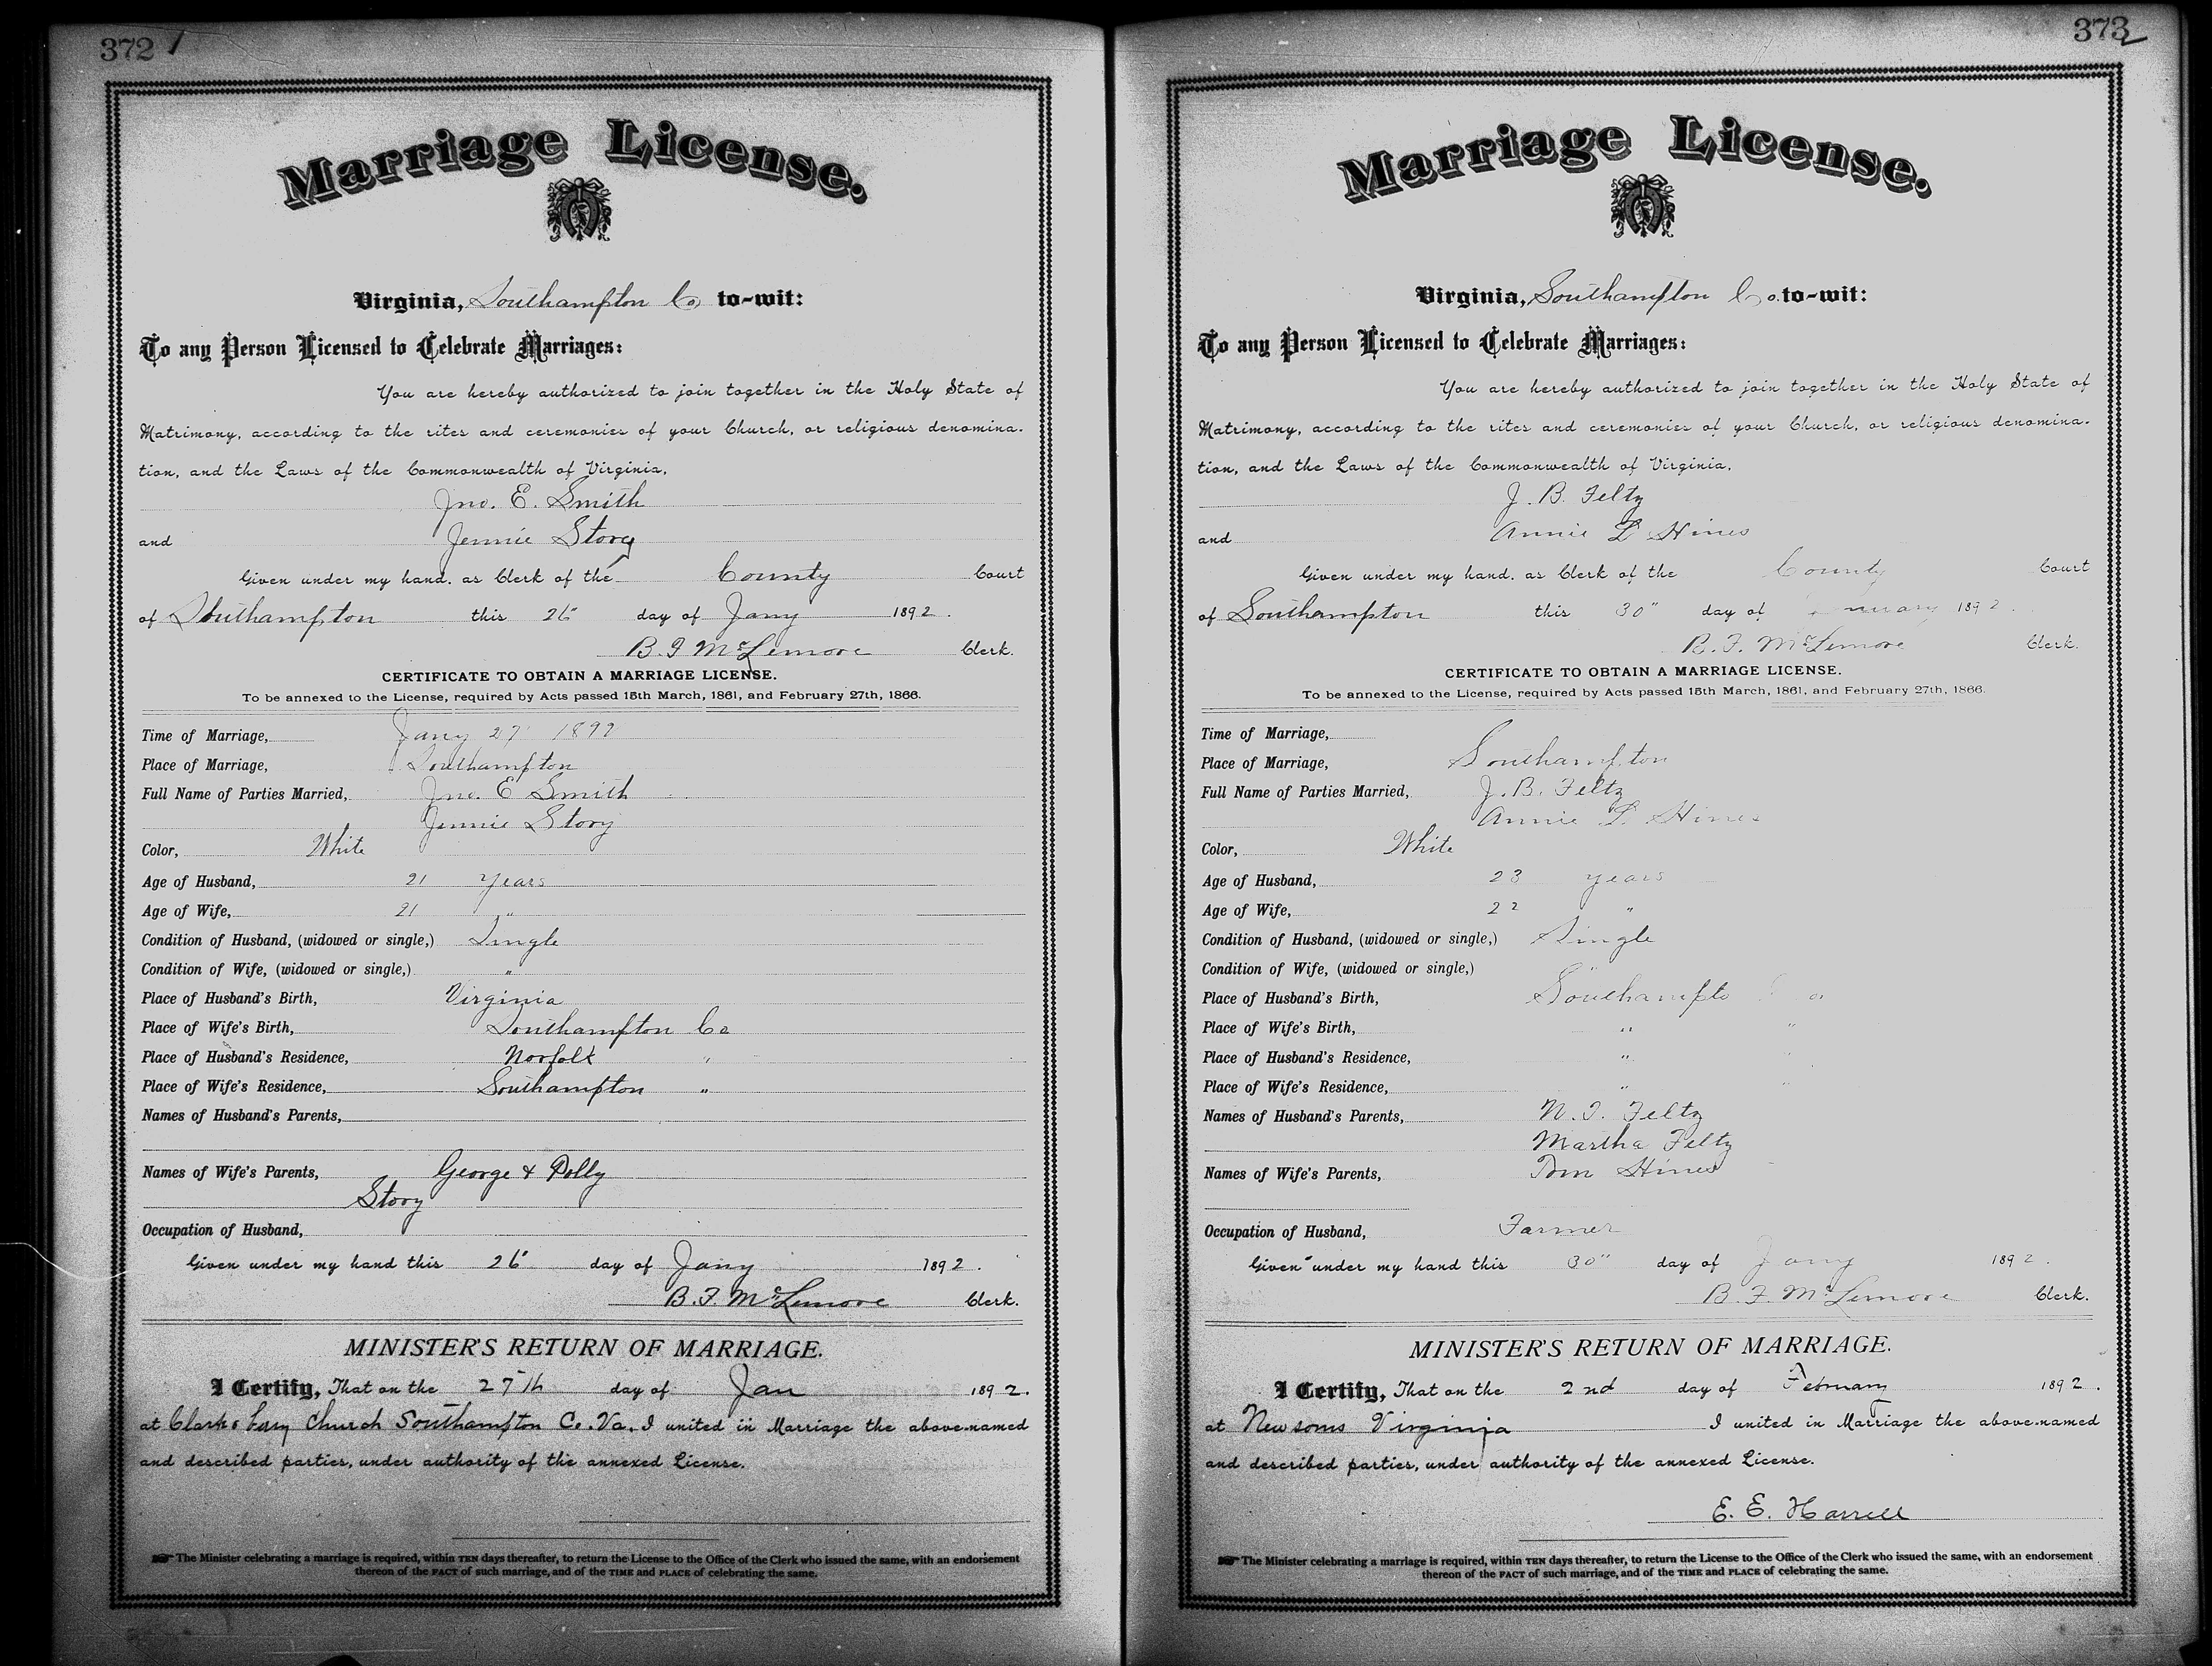 372
Marriage License.
Virginia, Southampton Co to-wit:
To any Person Licensed to Celebrate Marriages:
You are hereby authorized to join together in the Holy State of
Matrimony, according to the rites and ceremonies of your Church, or religious denomina-
tion, and the Laws of the Commonwealth of Virginia,
Jno. E. Smith
and Jennie Story
Given under my hand, as Clerk of the County Court
of Southampton this 26" day of Jany 1892.
B. F McLemore Clerk.
CERTIFICATE TO OBTAIN A MARRIAGE LICENSE.
To be annexed to the License, required by Acts passed 15th March, 1861, and February 27th, 1866.
Time of Marriage, Jany 27" 1892
Place of Marriage, Southampton
Full Name of Parties Married, Jno. E Smith
Jennie Story
Color, White
Age of Husband, 21 years
Age of Wife, 21 "
Condition of Husband, (widowed or single,) Single
Condition of Wife, (widowed or single,) "
Place of Husband's Birth, Virginia
Place of Wife's Birth, Southampton Co
Place of Husband's Residence, Norfolk "
Place of Wife's Residence, Southampton "
Names of Husband's Parents,
Names of Wife's Parents, George & Polly
Story
Occupation of Husband,
Given under my hand this 26" day of Jany 1892.
B. F. McLemore Clerk.
MINISTER'S RETURN OF MARRIAGE.
I Certify, That on the 27th day of Jan 1892.
at Church Southampton Co. Va. I united in Marriage the above-named
and described parties, under authority of the annexed License.
The Minister celebrating a marriage is required, within TEN days thereafter, to return the License to the Office of the Clerk who issued the same, with an endorsement
thereon of the FACT of such marriage, and of the TIME and PLACE of celebrating the same.
373
Marriage License.
Virginia, Southampton Co. to-wit:
To any Person Licensed to Celebrate Marriages:
You are hereby authorized to join together in the Holy State of
Matrimony, according to the rites and ceremonies of your Church, or religious denomina-
tion, and the Laws of the Commonwealth of Virginia,
J. B. Feltz
and Annie L Hines
Given under my hand, as Clerk of the County Court
of Southampton this 30" day of January 1892.
B. F. McLemore Clerk.
CERTIFICATE TO OBTAIN A MARRIAGE LICENSE.
To be annexed to the License, required by Acts passed 15th March, 1861, and February 27th, 1866.
Time of Marriage,
Place of Marriage, Southampton
Full Name of Parties Married, J. B. Feltz
Annie L. Hines
Color, White
Age of Husband, 23 years
Age of Wife, 22 "
Condition of Husband, (widowed or single,) Single
Condition of Wife, (widowed or single,) "
Place of Husband's Birth, Southampton Co
Place of Wife's Birth, " "
Place of Husband's Residence, " "
Place of Wife's Residence, " "
Names of Husband's Parents, N. T. Feltz
Martha Feltz
Names of Wife's Parents, Tom Hines
Occupation of Husband, Farmer
Given under my hand this 30" day of Jany 1892.
B. F. McLemore Clerk.
MINISTER'S RETURN OF MARRIAGE.
I Certify, That on the 2nd day of February 1892.
at Newsoms Virginia I united in Marriage the above-named
and described parties, under authority of the annexed License.
E. E. Harrell
The Minister celebrating a marriage is required, within TEN days thereafter, to return the License to the Office of the Clerk who issued the same, with an endorsement
thereon of the FACT of such marriage, and of the TIME and PLACE of celebrating the same.